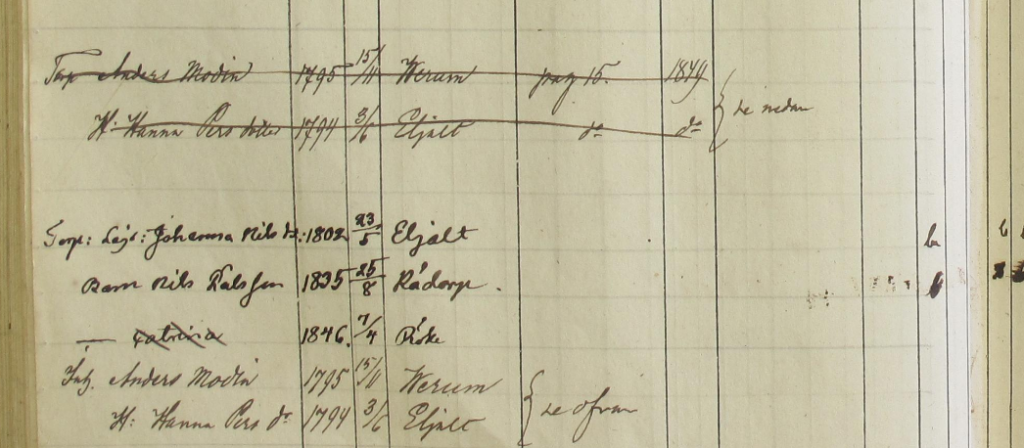 Torp. Anders Modin 1795 15/11 Werum pag 15. 1849
H: Hanna Pers dotter 1794 3/6 Eljalt do do se nedan
Torp: Johanna Nils dr: 1802 23/5 Eljalt
Barn Nils Pålsson 1835 25/8 Rådorp.
— Catrina 1846. 7/4 Röke
Inh. Anders Modin 1795 15/11 Werum
H: Hanna Pers dr 1794 3/6 Eljalt se ofvan